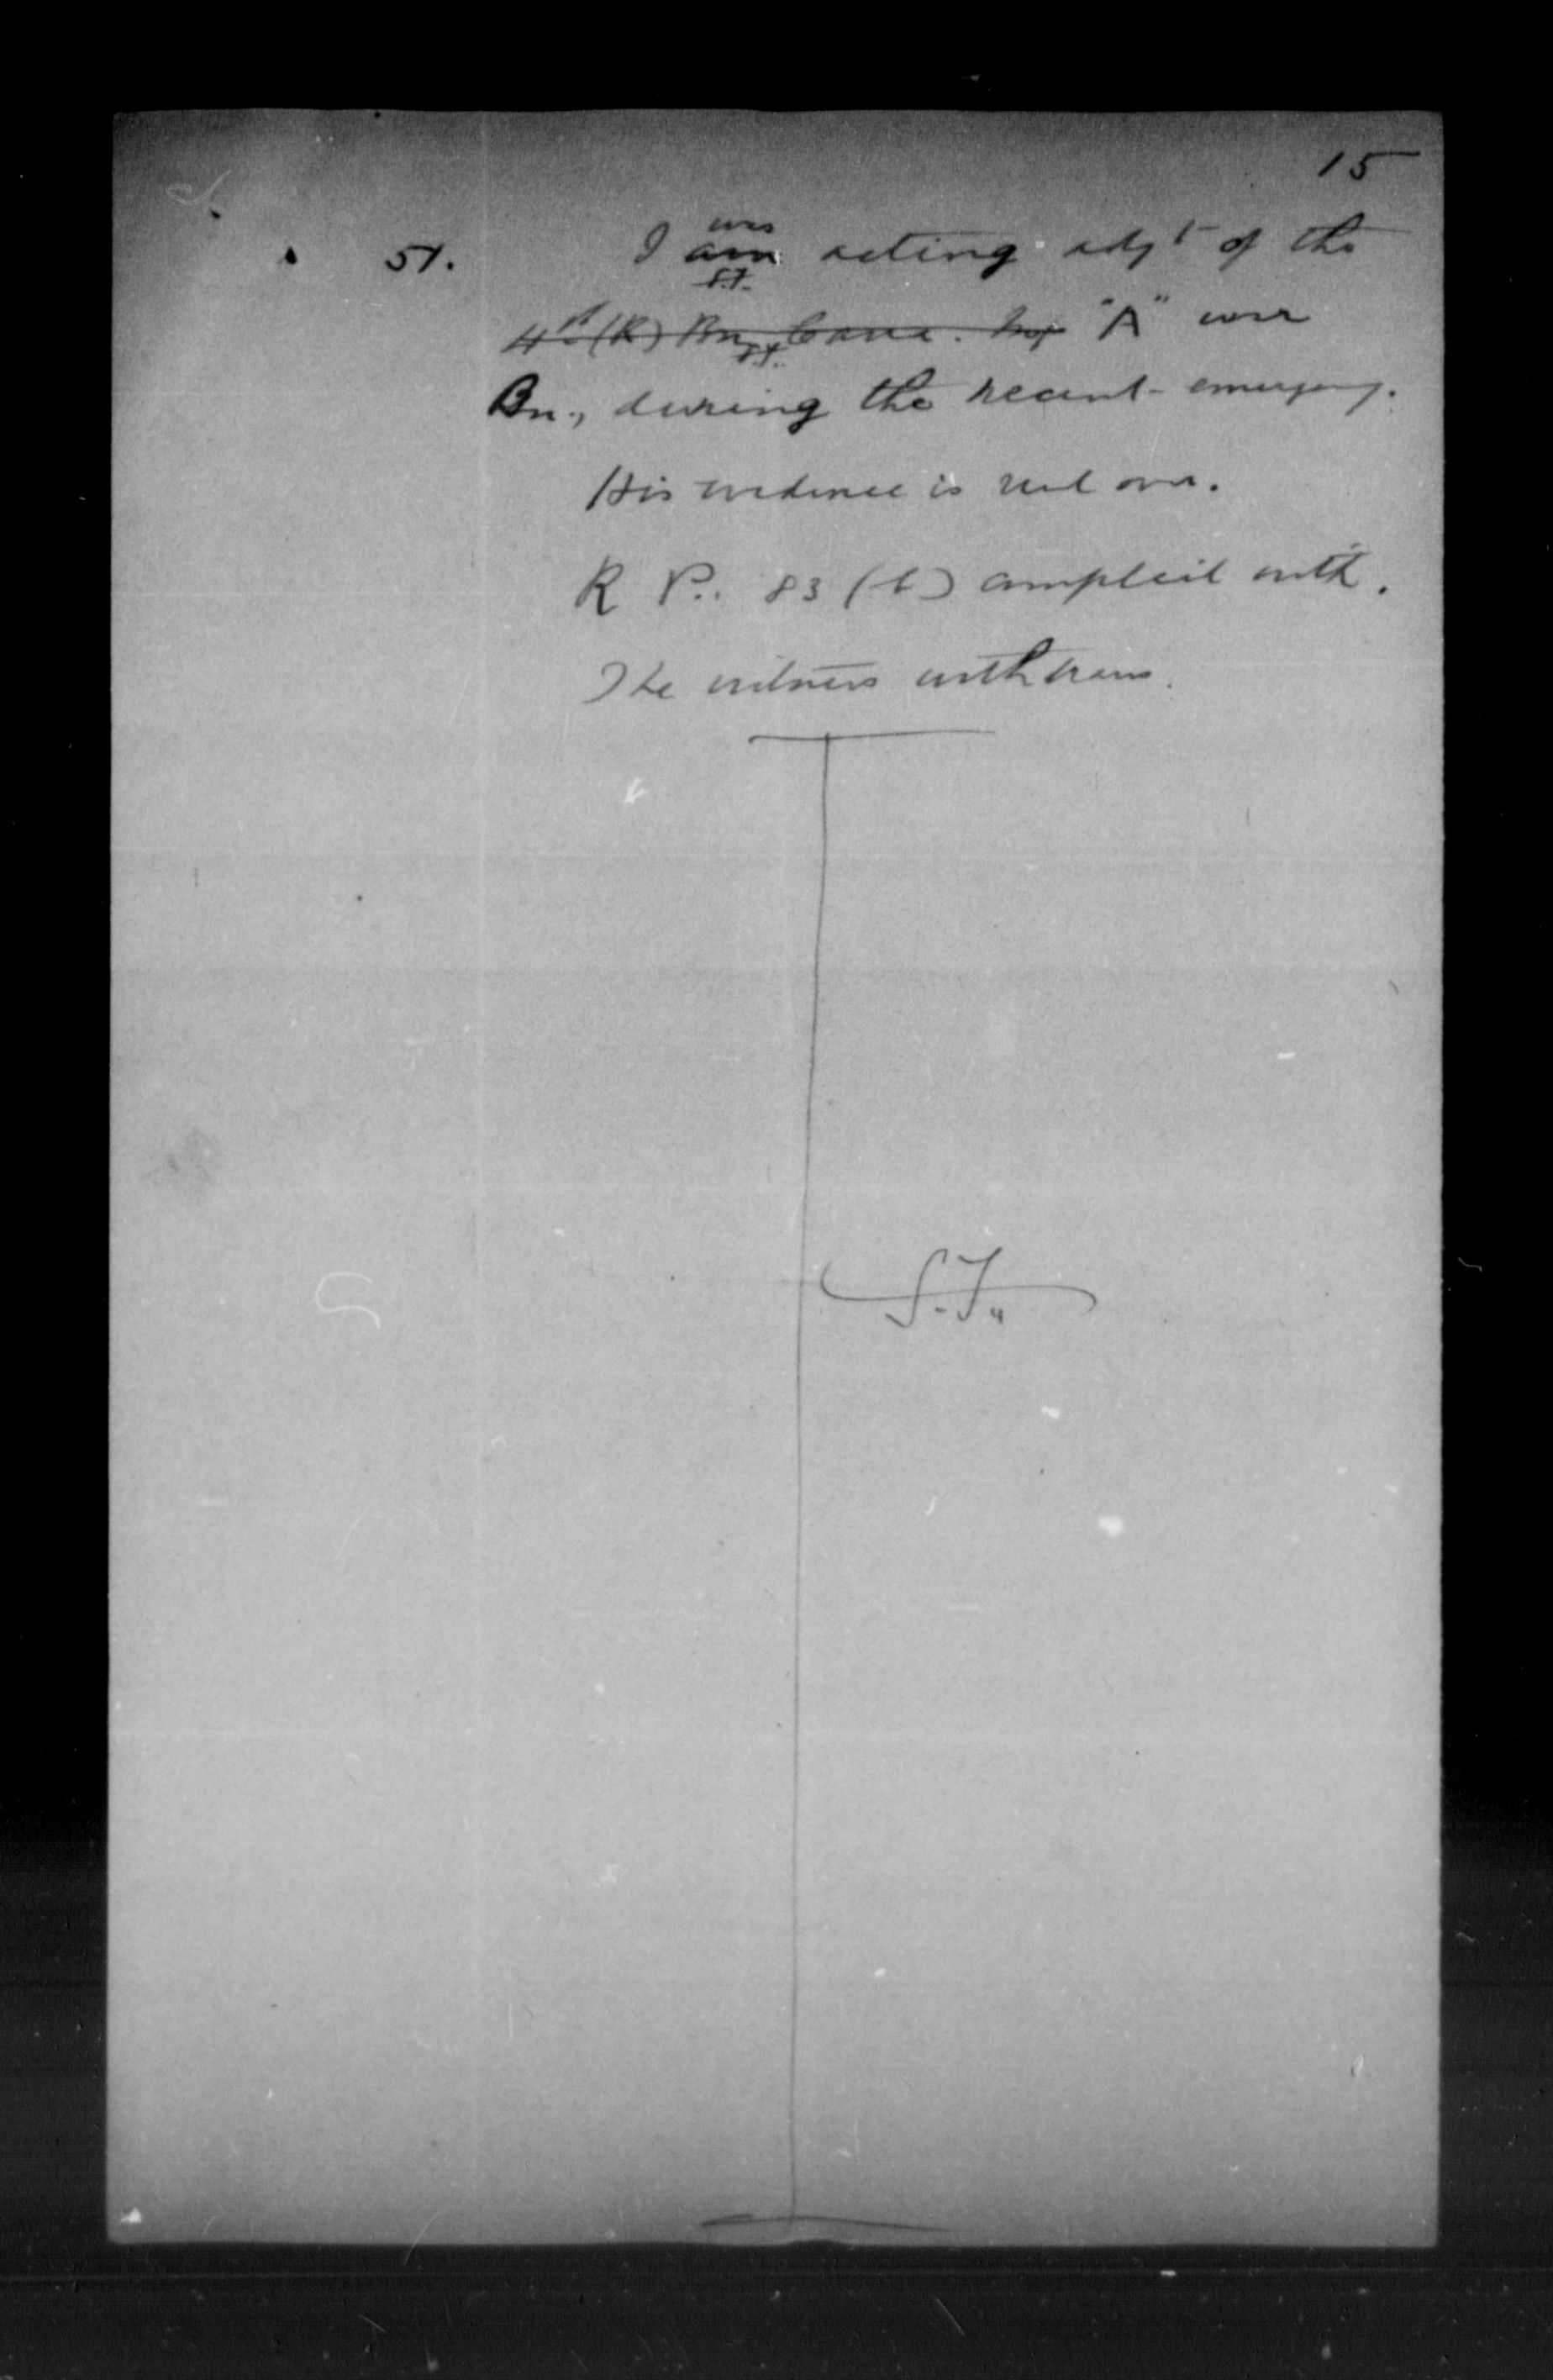 15
51. I was am acting adjt of the
S.F.
4th (R) Bn Cana. Inf "A"
S.F.
Bn., during the recent emergency.
His evidence is read over.
R P. 83 (b) complied with.
The witness withdraws.
S.F.